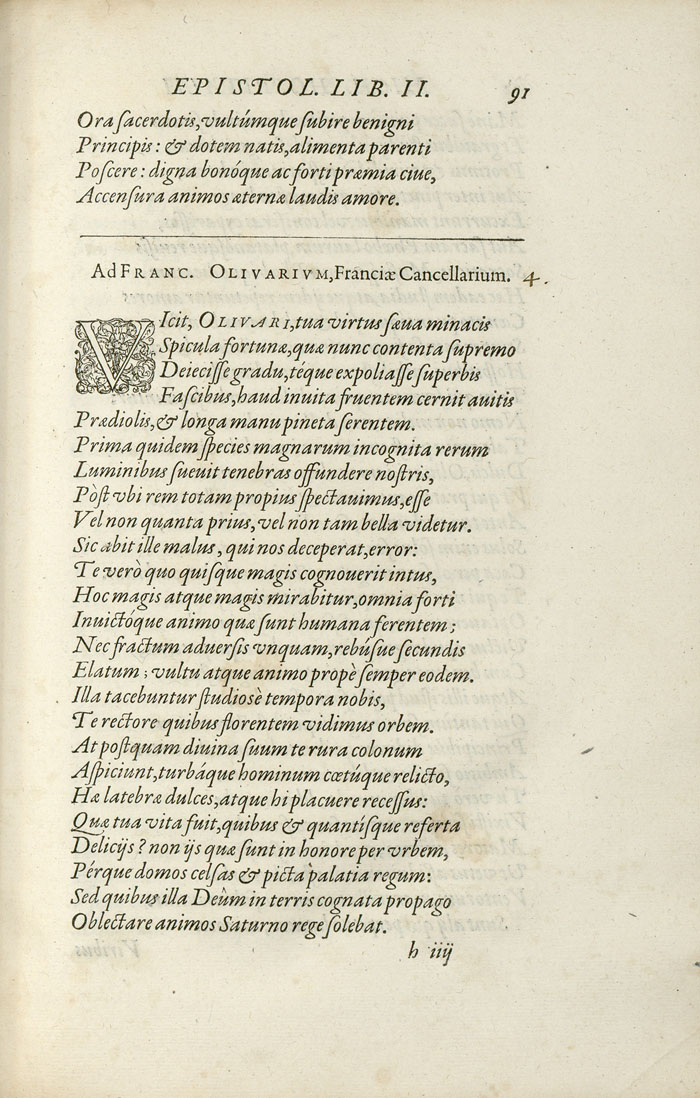 EPISTOL. LIB. II. 91
Ora sacerdotis, vultúmque subire benigni
Principis: & dotem natis, alimenta parenti
Poscere: digna bonóque ac forti præmia ciue,
Accensura animos æternæ laudis amore.
Ad FRANC. OLIVARIVM, Franciæ Cancellarium. 4.
VIcit, OLIVARI, tua virtus sæua minacis
Spicula fortunæ, quæ nunc contenta supremo
Deiecisse gradu, téque expoliasse superbis
Fascibus, haud inuita fruentem cernit auitis
Prædiolis, & longa manu pineta serentem.
Prima quidem species magnarum incognita rerum
Luminibus sueuit tenebras offundere nostris,
Pòst vbi rem totam propius spectauimus, esse
Vel non quanta prius, vel non tam bella videtur.
Sic abit ille malus, qui nos deceperat, error:
Te verò quo quisque magis cognouerit intus,
Hoc magis atque magis mirabitur, omnia forti
Inuictóque animo quæ sunt humana ferentem;
Nec fractum aduersis vnquam, rebúsue secundis
Elatum; vultu atque animo propè semper eodem.
Illa tacebuntur studiosè tempora nobis,
Te rectore quibus florentem vidimus orbem.
At postquam diuina suum te rura colonum
Aspiciunt, turbáque hominum cœtúque relicto,
Hæ latebræ dulces, atque hi placuere recessus:
Quæ tua vita fuit, quibus & quantísque referta
Delicijs? non ijs quæ sunt in honore per vrbem,
Pérque domos celsas & picta palatia regum:
Sed quibus illa Deûm in terris cognata propago
Oblectare animos Saturno rege solebat.
h iiij